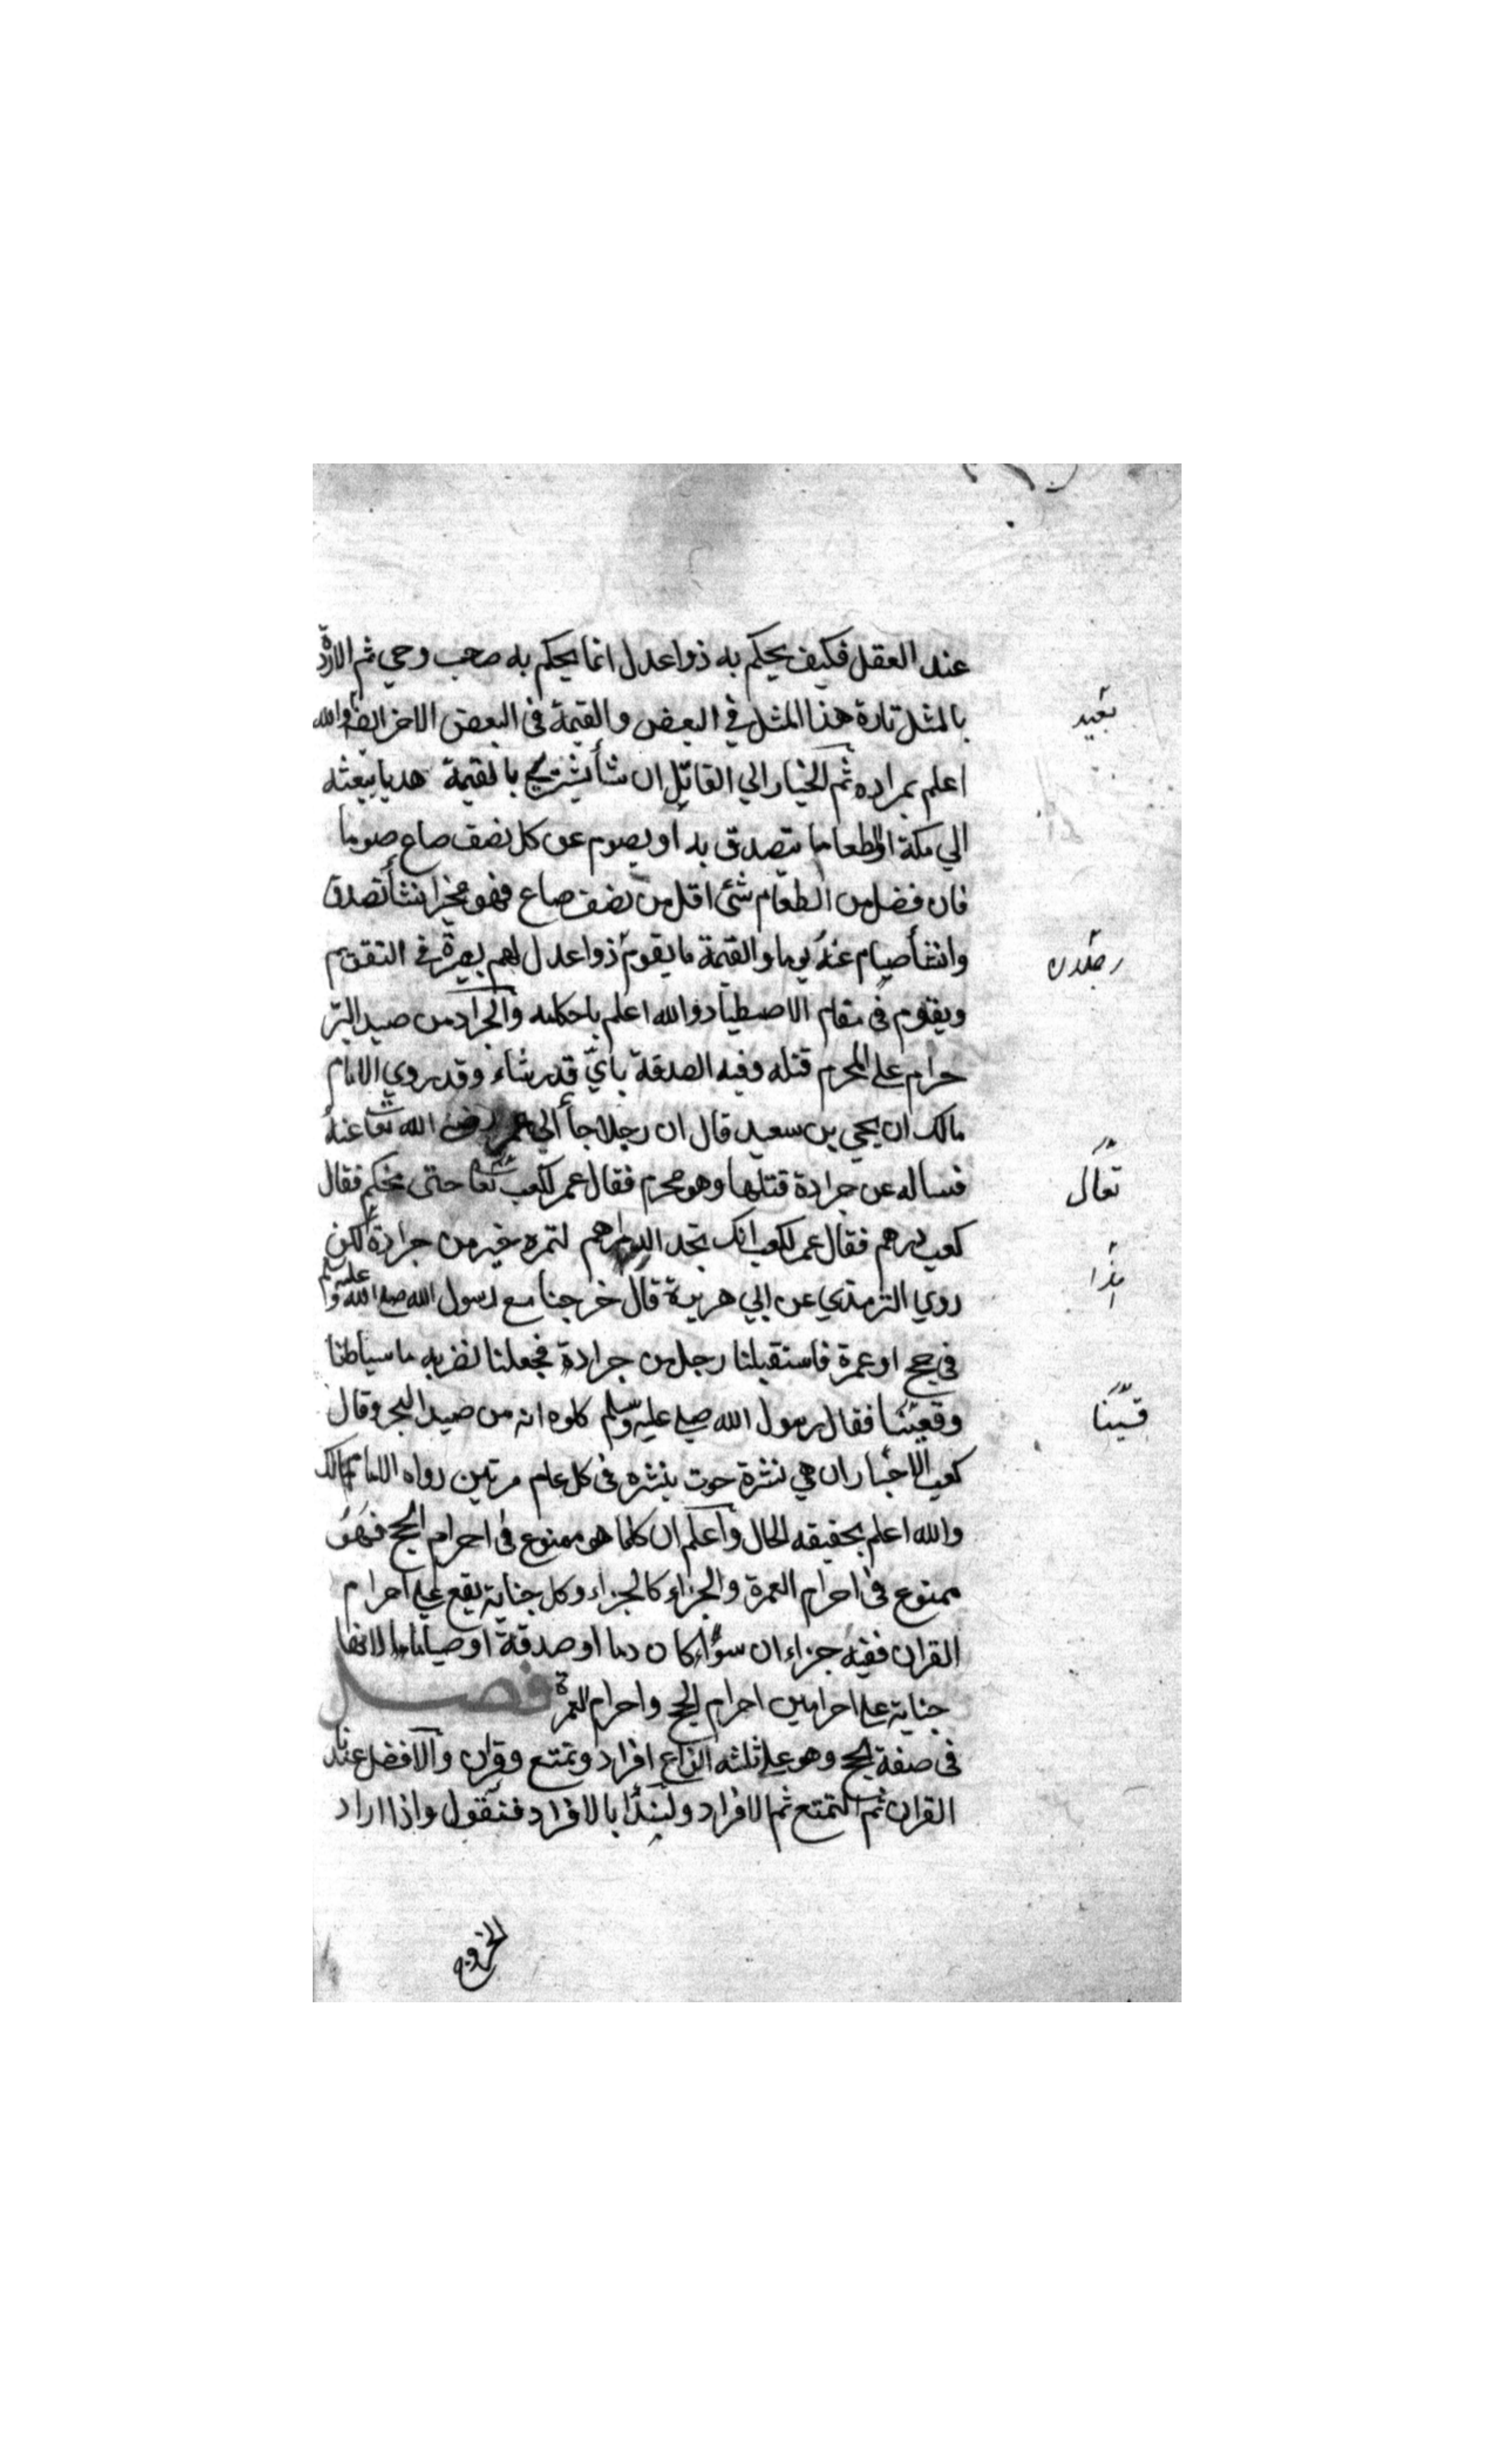 عند العقل فكيف يحكم به ذوا عدل انما يحكم به صاحب وحي ثم الارادة
بالمثل تارة هذا المثل في البعض والقيمة في البعض الاخر ايضا والله
اعلم بمراده ثم الخيار الي القاتل ان شأ يشتري بالقيمة هديا يبعثه
الي مكة او طعاما يتصدق به او يصوم عن كل نصف صاع صوما
فان فضل من الطعام شئ اقل من نصف صاع فهو مخير انشأ تصدق
وانشأ صيام عنه يوما والقيمة ما يقوم ذوا عدل لهم بصيرة في التقويم
ويقوم في مقام الاصطياد والله اعلم باحكامه والجراد من صيد البر
حرام علي المحرم قتله وفيه الصدقة باي قدر شاء وقد روي الامام
مالك ان يحيي بن سعيد قال ان رجلا جأ الي عمر رضي الله تعا عنه
فساله عن جرادة قتلها وهو محرم فقال عمر لكعب تعا حتى نحكم فقال
كعب درهم فقال عمر لكعب انك تجد الدراهم لتمرة خير من جرادة لكن
روي الترمذي عن ابي هريرة قال خرجنا مع رسول الله صلى الله عليه وسلم
في حج او عمرة فاستقبلنا رجل من جرادة فجعلنا نضربه ما سياطنا
وقعيتنا فقال رسول الله صلي عليه وسلم كلوه انه من صيد البحر وقال
كعب الاحبار ان هي نثرة حوت ينثره في كل عام مرتين رواه الامام مالك
والله اعلم بحقيقه الحال واعلم ان كلما هو ممنوع في احرام الحج فهو
ممنوع في احرام العمرة والجزاء كالجزاء وكل جناية يقع علي احرام
القران ففيه جزاءان سواء كان دما او صدقة او صياما لانها
جناية علي احرامين احرام الحج واحرام العمرة فصل
في صفة الحج وهو علي ثلثه انواع افراد وتمتع وقران والافضل عندنا
القران ثم التمتع ثم الافراد ولنبدأ بالافراد فنقول واذا اراد
بعيد
تعال
هذا
قسينا
الخروج